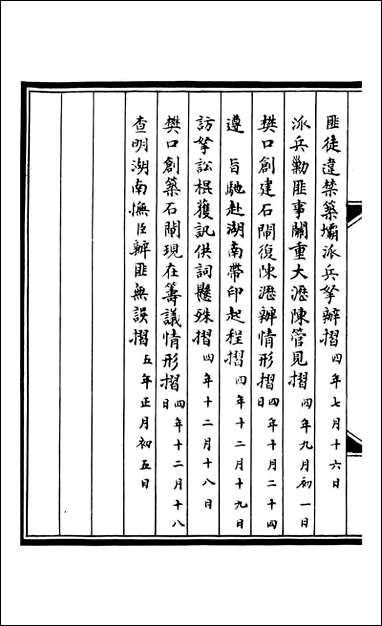 匪徒違禁築壩派兵拏辦摺四年七月十六日
派兵勦匪事關重大瀝陳管見摺四年九月初一日
樊口創建石閘復陳瀝辦情形摺四年十月二十四日
遵 旨馳赴湖南帶印起程摺四年十二月十九日
訪拏訟棍獲訊供詞懸殊摺四年十二月十八日
樊口創築石閘現在籌議情形摺四年十二月十八日
查明湖南撫臣辦匪無誤摺五年正月初五日